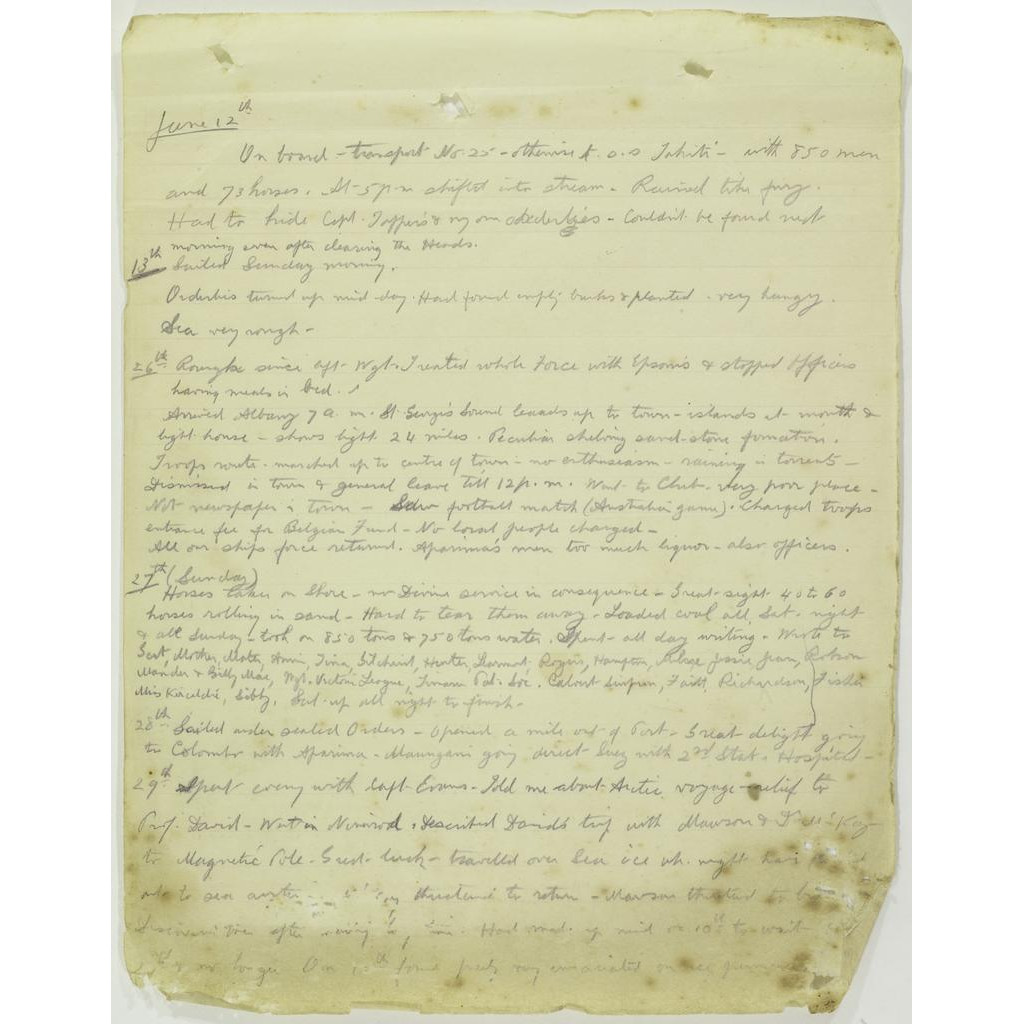 June 12th
On board - transport No. 25 - otherwise s.s Tahiti - with 850 men
and 73 horses. At 5 p.m shifted into stream - Rained like fury.
Had to hide Capt. my own orderlies - Couldn't be found next
morning even after clearing the Heads.
13th Sailed Sunday morning.
Orderlies turned up mid-day. Had found empty bunks & planted. very hungry.
Sea very rough -
26th Roughly since left Wgt. Treated whole Force with Epsoms & stopped Officers
having meals in bed.
Arrived Albany 7 a.m. St George's Sound leads up to town - islands at mouth &
light house - shows light 24 miles. Peculiar shelving sand-stone formation.
Troops route-marched up to centre of town - no enthusiasm - raining in torrents -
Dismissed in town & general leave till 12 p.m. Went to Club - very poor place -
Not newspaper in town - Saw football match (Australian game). Charged troops
entrance fee for Belgian Fund - No local people charged -
All our ships force returned. Aparima's men too much liquor - also officers.
27th (Sunday)
Horses taken on Shore - no Divine service in consequence - Great sight 40 to 60
horses rolling in sand - Hard to tear them away - Loaded coal all Sat. night
& all Sunday - took on 850 tons & 750 tons water. Spent all day writing - Wrote to
Mother, Gilchrist, Hunter, Learmont, Rogers, Hampton, Jessie, Jean, Robson
& Billy Mac, Wgt. Victoria League, Pat. Soc. Calvert Simpson, Faith, Richardson, Fisher
Miss Sibby. Sat up all night to finish -
28th Sailed under sealed Orders - Opened a mile out of Port - Great delight going
to Colombo with Aparima - Maunganui going direct Suez with 2nd Stat. Hospital -
29th Spent eveng with Capt Evans - Told me about Arctic voyage - relief to
Prof. David - Went in Nimrod. Described David's trip with Mawson & Dr McKay
to Magnetic Pole - Great luck - travelled over Sea ice wh. might have
out to sea threatened to return - Mawson
after Had made up mind on 10th to wait
& no longer On 10th found emaciated on